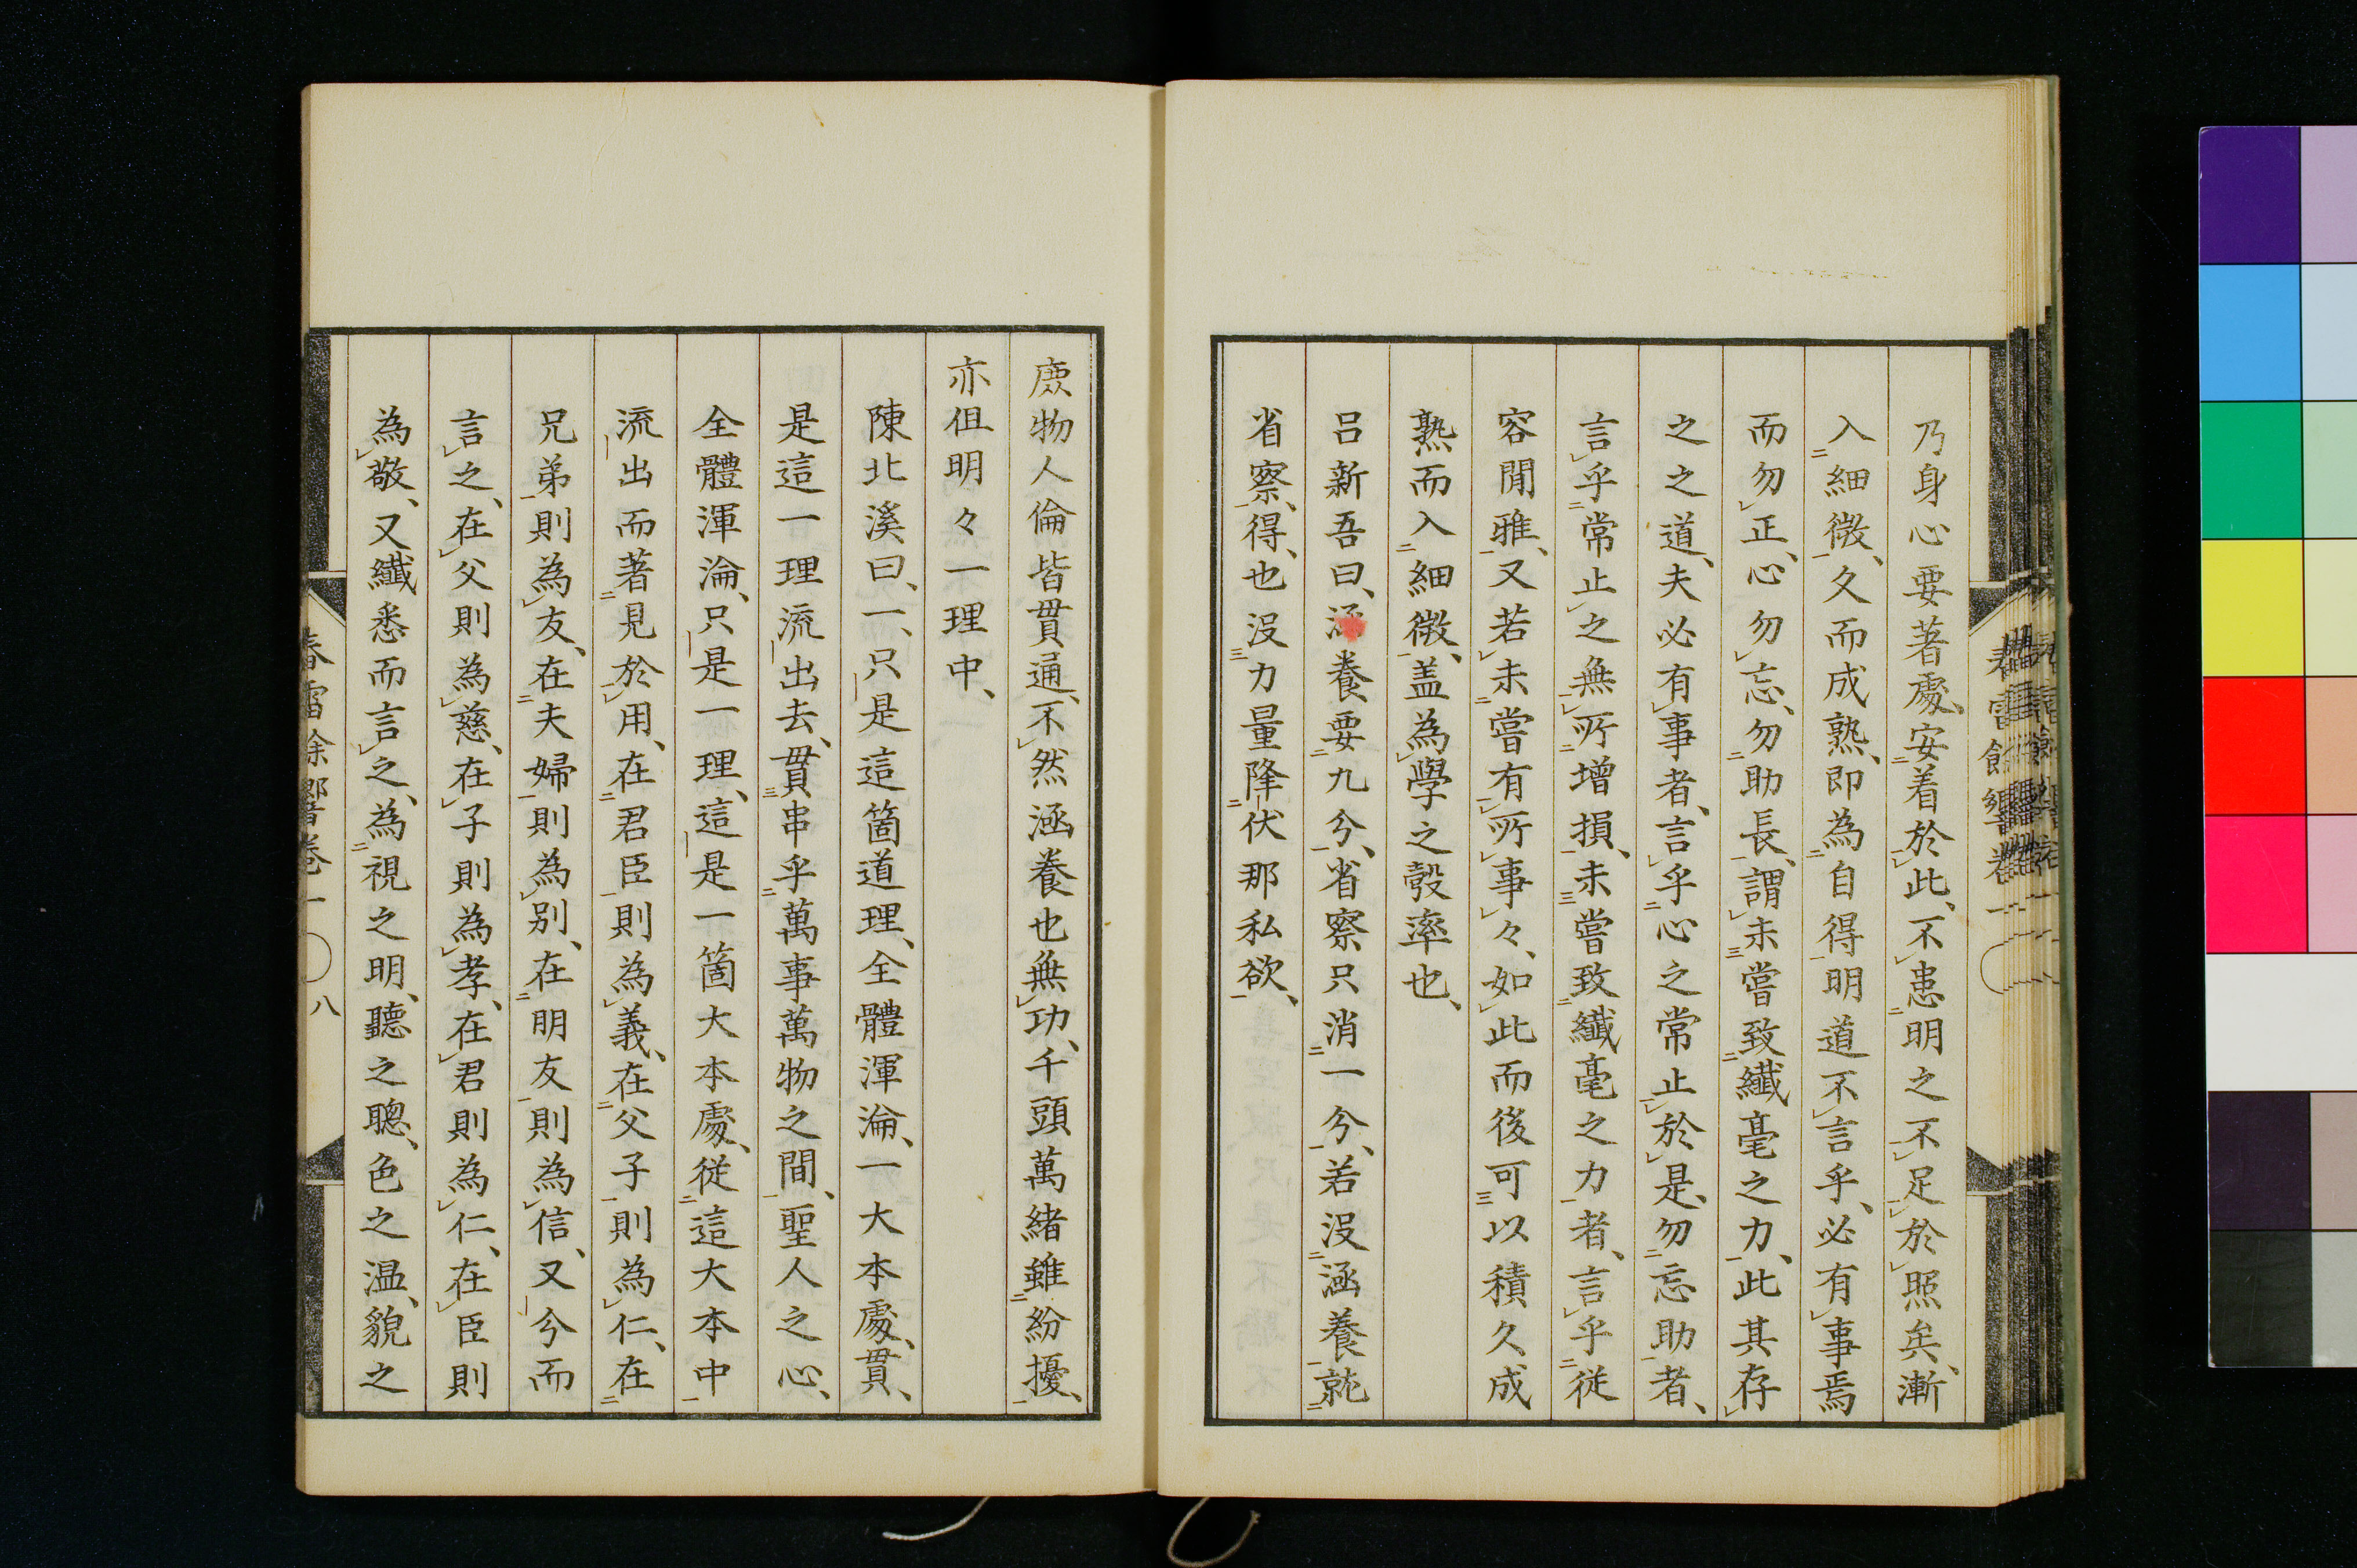 乃身心要著處、安着於此、不患明之不足於照矣、漸
入細微、久而成熟、即為自得明道不言乎、必有事焉
而勿正、心勿忘、勿助長、謂未嘗致纖毫之力、此其存
之之道、夫必有事者、言乎心之常止於是、勿忘助者、
言乎常止之無所增損、未嘗致纖毫之力者、言乎従
容閒雅、又若未嘗有所事々、如此而後可以積久成
熟而入細微、盖為學之彀率也、
呂新吾曰、涵養要九分、省察只消一分、若没涵養就
省察、得、也没力量降伏那私欲、
庶物人倫皆貫通、不然涵養也無功、千頭萬緒雖紛擾、
亦但明々一理中、
陳北溪曰、一、只是這箇道理、全體渾淪、一大本處、貫、
是這一理流出去、貫串乎萬事萬物之間、聖人之心、
全體渾淪、只是一理、這是一箇大本處、従這大本中
流出而著見於用、在君臣則為義、在父子則為仁、在
兄弟則為友、在夫婦則為別、在朋友則為信、又分而
言之、在父則為慈、在子則為孝、在君則為仁、在臣則
為敬、又纖悉而言之、為視之明、聽之聰、色之温、貌之
春雷餘響卷一 八